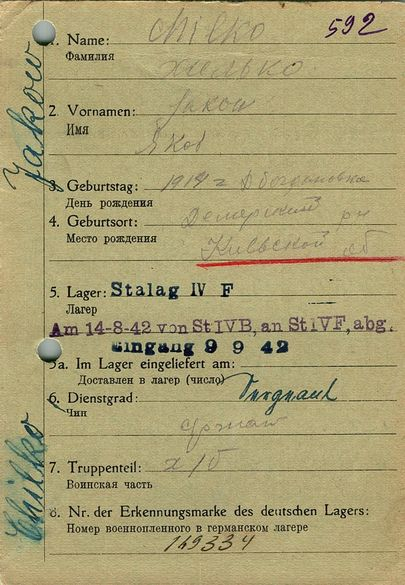 592
1. Name: Chilko
Фамилия
Хилько
2. Vornamen: Jakow
Имя
Яков
3. Geburtstag: 1914 г Д Богдановка
День рождения
4. Geburtsort:
Место рождения
Киевской об
5. Lager: Stalag IV F
Лагер
Am 14-8-42 von StIVB, an StIVF, abg.
Eingang 9 9 42
5a. Im Lager eingeliefert am:
Доставлен в лагер (число)
6. Dienstgrad: Sergeant
Чин
7. Truppenteil: х/б
Воинская часть
8. Nr. der Erkennungsmarke des deutschen Lagers:
Номер военнопленного в германском лагере
169334
Jakow
Chilko